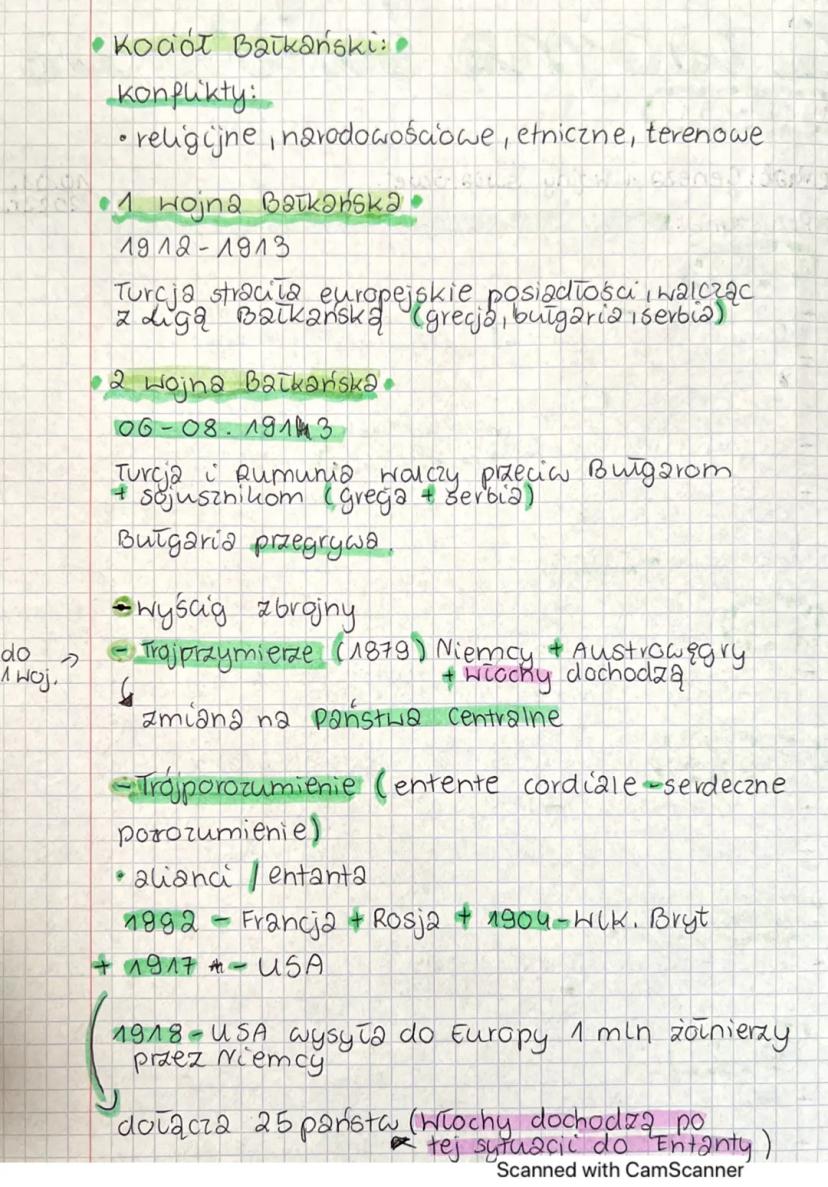 • Kocioł Bałkański: •
Konflikty:
• religijne, narodowościowe, etniczne, terenowe
• 1 wojna Bałkańska •
1912-1913
Turcja straciła europejskie posiadłości, walcząc
z Ligą Bałkańską (grecja, bułgaria, serbia)
• 2 wojna Bałkańska •
06-08. 1913
Turcja i Rumunia walczy przeciw Bułgarom
+ sojusznikom (grecja + serbia)
Bułgaria przegrywa.
- wyścig zbrojny
do → - Trójprzymierze (1879) Niemcy + Austrowęgry
1 woj. + Włochy dochodzą
zmiana na Państwa Centralne
- Trójporozumienie (entente cordiale - serdeczne
porozumienie)
• alianci / entanta
1892 - Francja + Rosja + 1904 - Wlk. Bryt
+ 1917 - USA
1918 - USA wysyła do Europy 1 mln żołnierzy
przez Niemcy
dołącza 25 państw (Włochy dochodzą po
tej sytuacji do Entanty)
Scanned with CamScanner